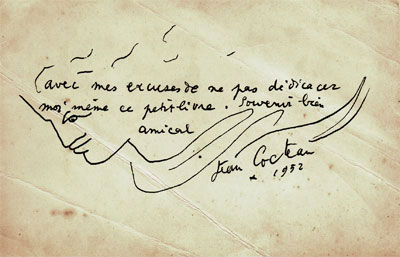 avec mes excuses de ne pas dédicacer
moi même ce petit livre. Souvenir bien
amical
Jean Cocteau
* 1952